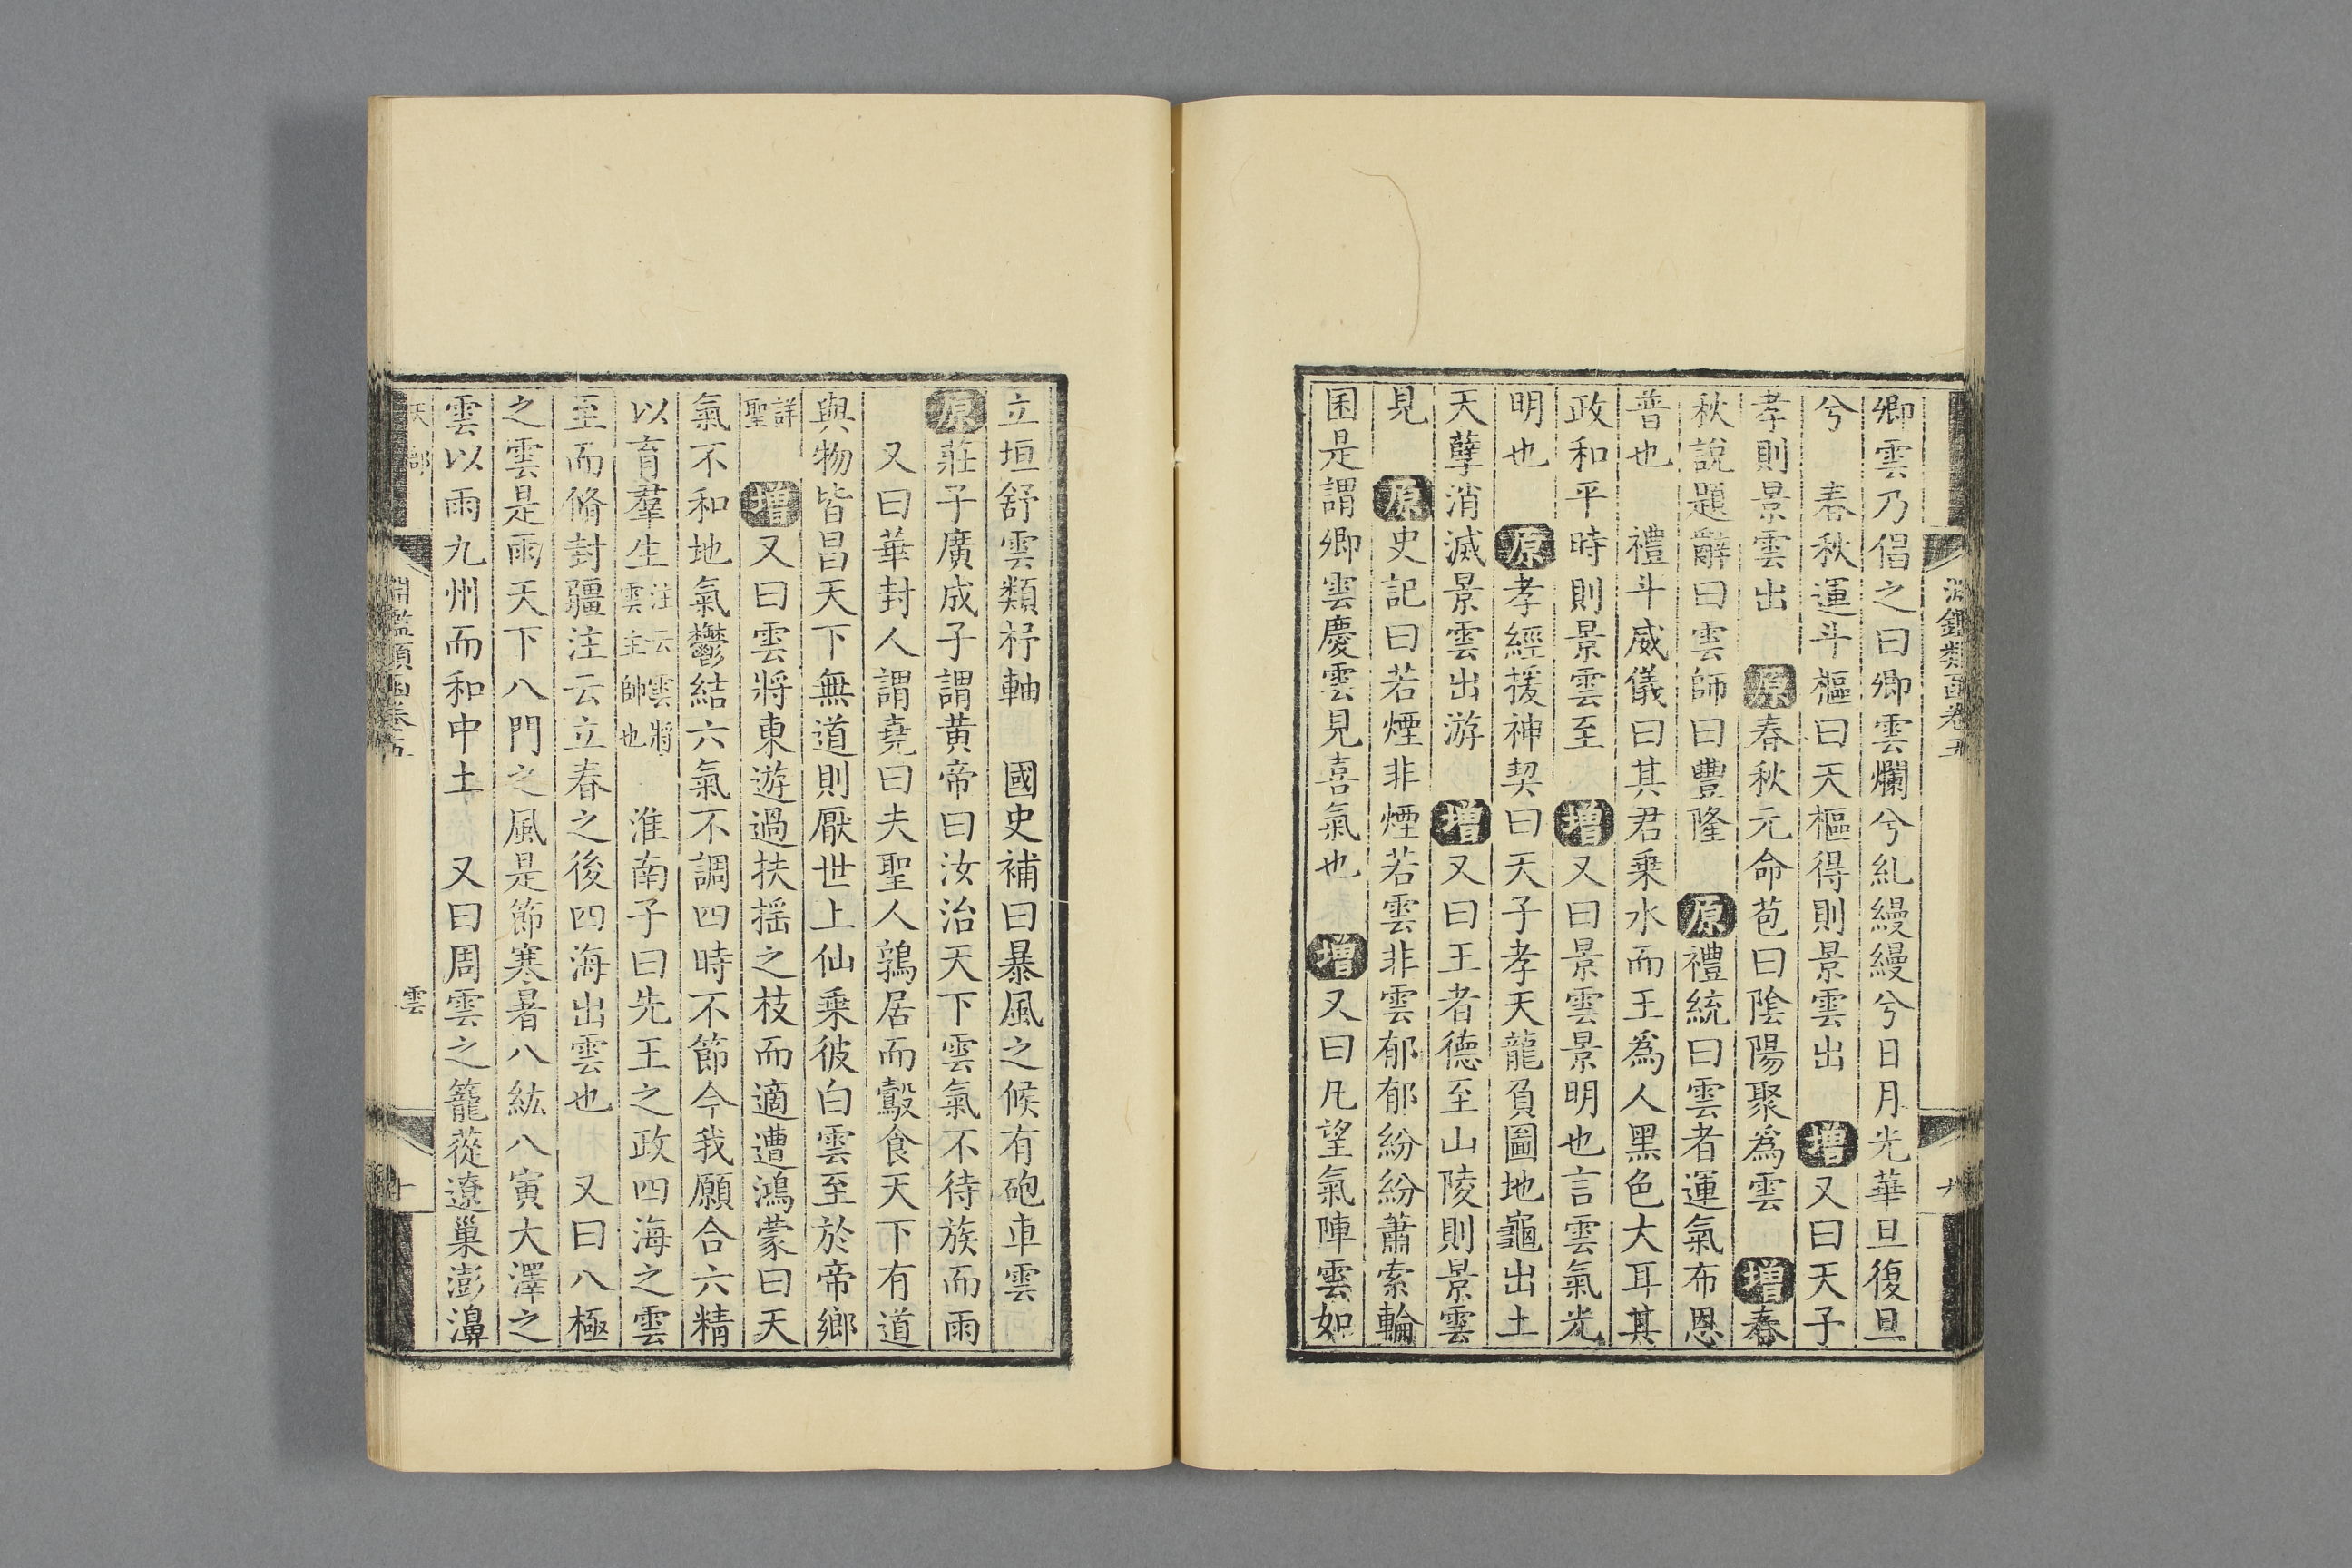 淵鑑類函卷五
九
卿雲乃倡之曰卿雲爛兮糺縵縵兮日月光華旦復旦
兮　春秋運斗樞曰天樞得則景雲出　增又曰天子
孝則景雲出　原春秋元命苞曰陰陽聚爲雲　增春
秋說題辭曰雲師曰豐隆　原禮統曰雲者運氣布恩
普也　禮斗威儀曰其君乗水而王爲人黑色大耳其
政和平時則景雲至　增又曰景雲景明也言雲氣光
明也　原孝經援神契曰天子孝天龍負圖地龜出土
天孽消滅景雲出游　增又曰王者德至山陵則景雲
見　原史記曰若煙非煙若雲非雲郁郁紛紛蕭索輪
囷是謂卿雲慶雲見喜氣也　增又曰凡望氣陣雲如
立垣舒雲類杼軸　國史補曰暴風之候有砲車雲
原莊子廣成子謂黄帝曰汝治天下雲氣不待族而雨
又曰華封人謂堯曰夫聖人鶉居而鷇食天下有道
與物皆昌天下無道則厭世上仙乗彼白雲至於帝鄉
詳聖　增又曰雲將東遊過扶摇之枝而適遭鴻蒙曰天
氣不和地氣鬱結六氣不調四時不節今我願合六精
以育羣生注云雲將雲主帥也　淮南子曰先王之政四海之雲
至而脩封疆注云立春之後四海出雲也　又曰八極
之雲是雨天下八門之風是節寒暑八紘八寅大澤之
雲以雨九州而和中土　又曰周雲之籠蓯遼巢澎濞
天部
淵鑑類函卷五
雲
十